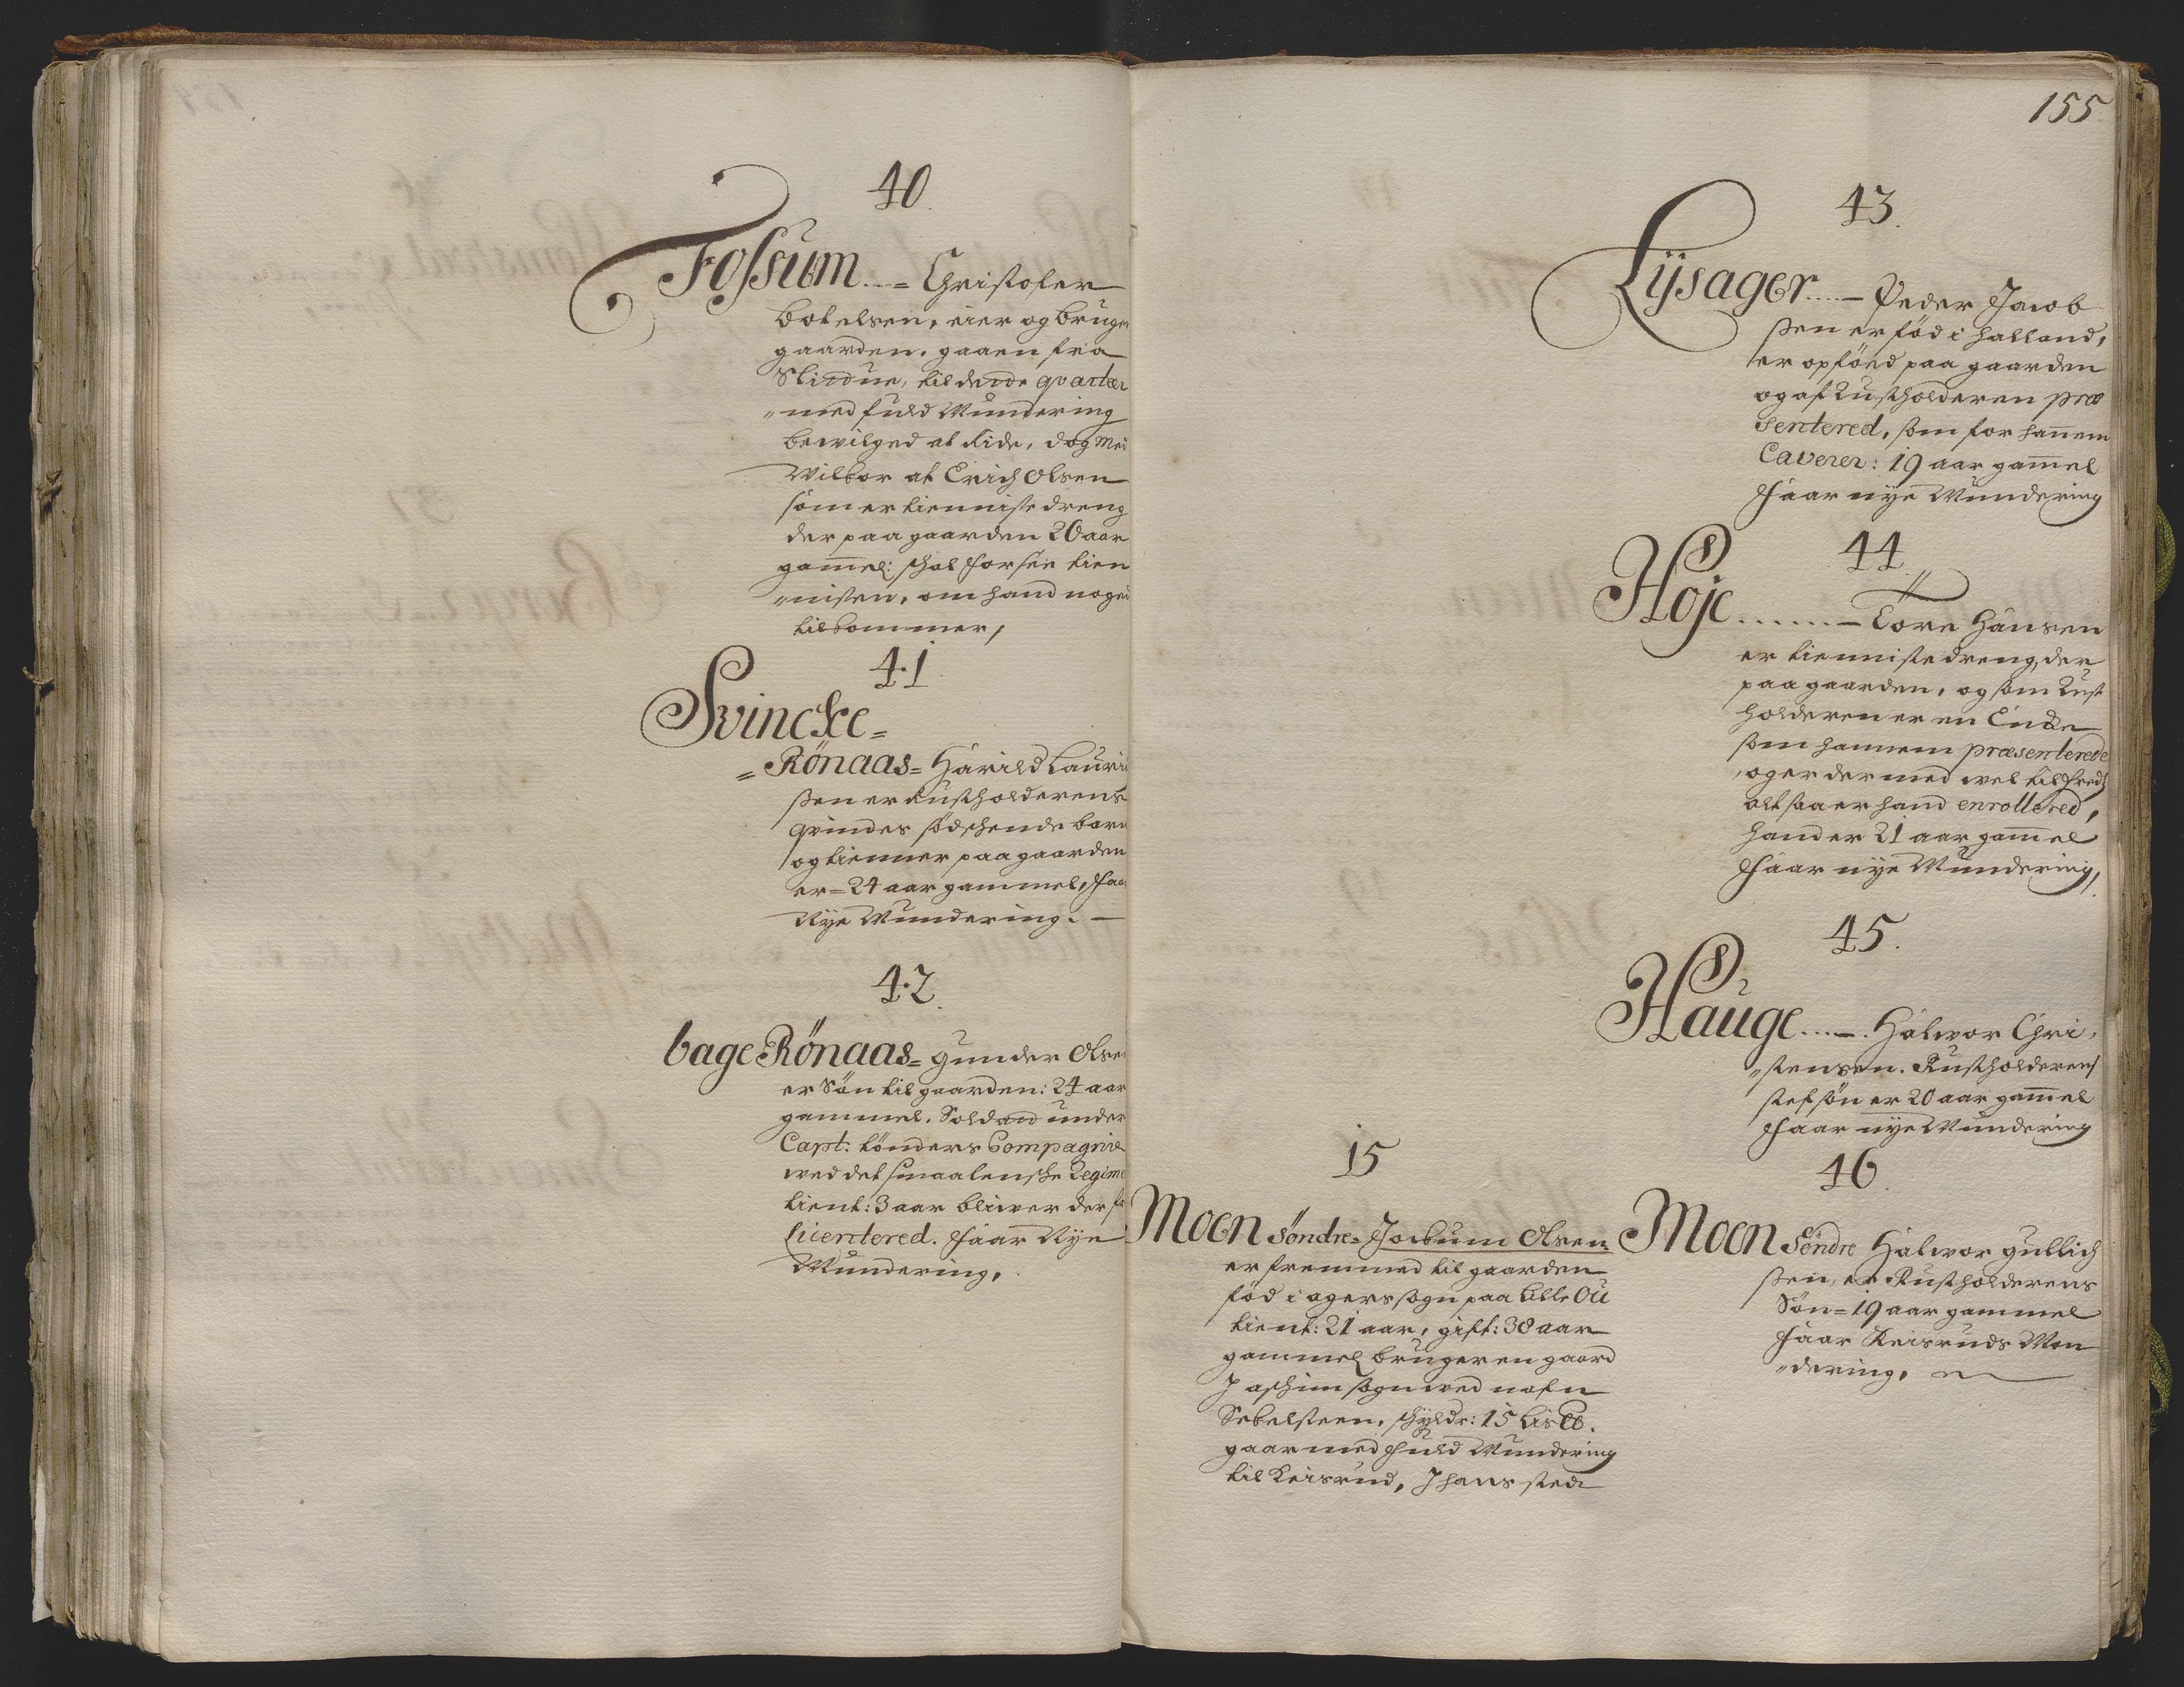 40.
Fossum...= Christofer
Botelsen, eier og bruger
gaarden. gaaen fra
Slindue, til dende qvarteer
"med fuld Mundering
bewilged at Ride, dog med
Vilkor at Erich Olsen
som er tienniste dreng
der paa gaarden 20 aar
gam̅el: schal forsee tien
"nisten, om hand noged
tilkommer,
41.
Svincke=
=Rönaas= Harild Laurid
ßen er Rustholderens
qvindes sødschende barn
og tienner paa gaarden
er=24 aar gammel, faar
Nye Mundering. —
42.
bage Rönaas= Gunder Olsen
er Sön til gaarden: 24 aar
gammel. Soldand under
Capt: Tönders Compagnie
wed det smaalensche Regime
tient: 3 aar bliwer der fra
licentered. faar Nye
Mundering,
155
43.
Lÿsager....— Peder Jacob
ßen er föd i Halland,
er opföed paa gaarden
og af Rustholderen præ
sentered, som for han̅em
Caverer: 19 aar gam̅el
faar nye Mundering
44
Høje......— Tore Hansen
er tienniste dreng, der
paa gaarden, og som Rust
holderen er en Encke
som hannem præsenterede
og er der med wel tilfreds
alt saa er hand enrollered,
hand er 21 aar gam̅el
faar nye Mundering,
45.
Hauge...—. Halwor Chri,
"stensen. Rustholderens
stefsön er 20 aar gam̅el
faar nye Mundering
15
Moen söndre= Jockum Olsen
er fremmed til gaarden
föd i agers sogn paa lille Ou
tient: 21 aar, gift: 38 aar
gammel bruger en gaard
J aschim sogn wed nafn
Sekelsteen, schyldr: 15 lis℔.
gaar med fuld Mundering
til Keisrud, J hans sted
46.
Moen Söndre Halwor Gullich
ßen, er Rustholderens
Sön= 19 aar gammel
faar Keisruds Mon
"dering,